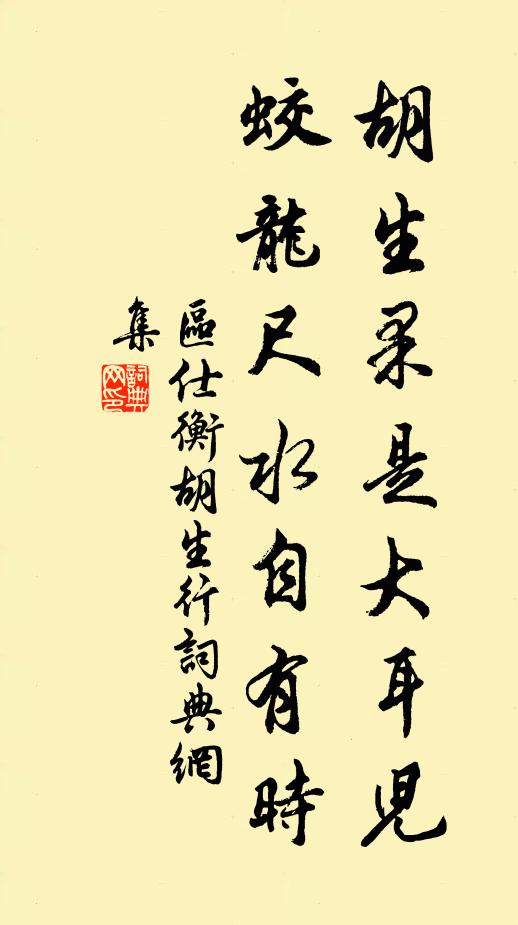 胡生果是大耳児
蛟龍尺水自有時
區仕衡胡生行詞典網
集
詞典
网印